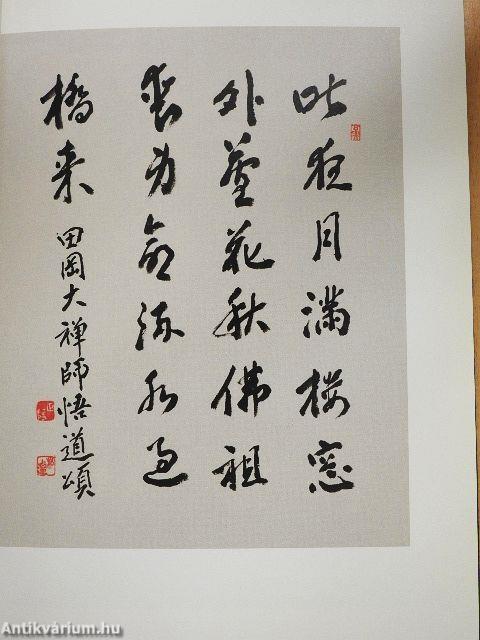 昨夜月満楼窓
外蘆花秋佛祖
喪身命流水過
橋来 田岡大禅師悟道頌
Antikvárium.hu